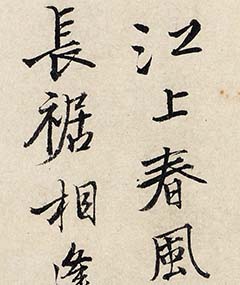 江上春風
長裾相逢